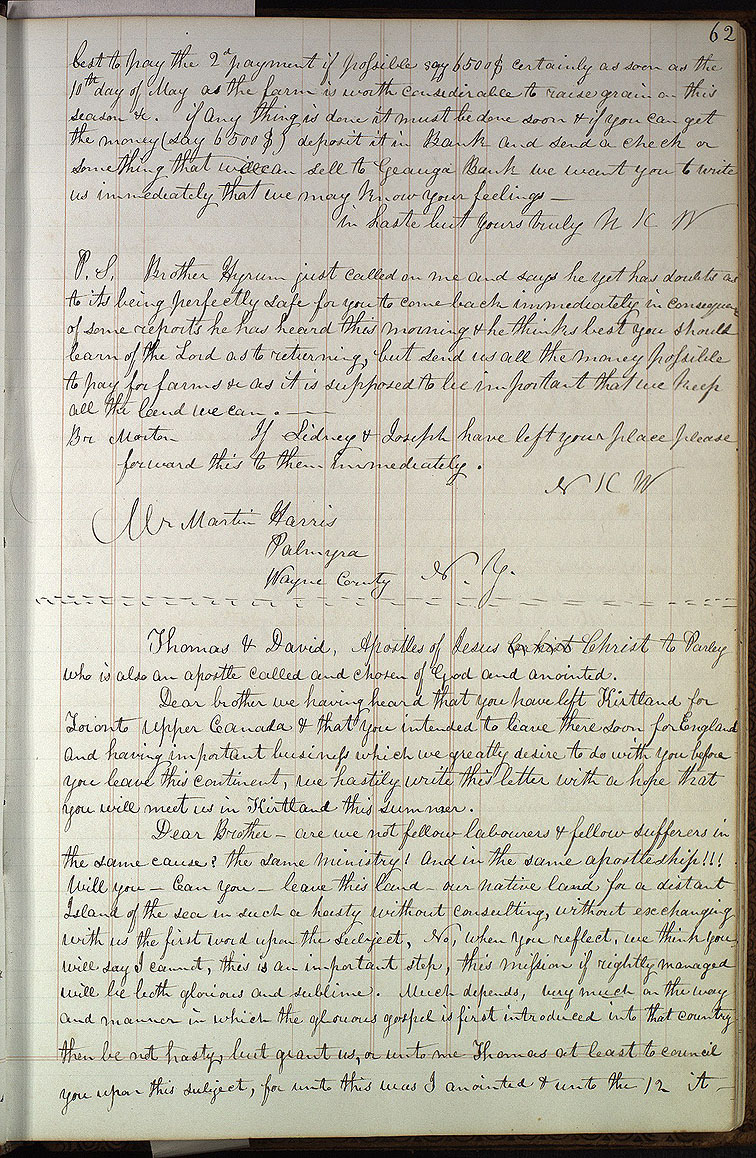 62
best to pay the 2d payment if possible say 6500$ certainly as soon as the
10th day of May as the farm is worth considerable to raise grain on this
season &c. if any thing is done it must be done soon & if you can get
the money (say 6500$) deposit it in Bank and send a check or
something that we can sell to Geauga Bank we want you to write
us immediately that we may know your feelings —
in haste but yours truly N K W
P. S. Brother Hyrum just called on me and says he yet has doubts as
to its being perfectly safe for you to come back immediately in consequence
of some reports he has heard this morning & he thinks best you should
learn of the Lord as to returning, but send us all the money possible
to pay for farms &c as it is supposed to be important that we keep
all the land we can. —
Br Morton If Sidney & Joseph have left your place please
forward this to them immediately.
N K W
Mr Martin Harris
Palmyra
Wayne County N. Y.
Thomas & David, Apostles of Jesus Christ to Parley
who is also an apostle called and chosen of God and anointed.
Dear brother we having heard that you have left Kirtland for
Toronto Upper Canada & that you intended to leave there soon for England
and having important business which we greatly desire to do with you before
you leave this continent, we hastily write this letter with a hope that
you will meet us in Kirtland this summer.
Dear Brother — are we not fellow labourers & fellow sufferers in
the same cause? the same ministry! And in the same apostleship!!!
Will you — Can you — leave this land — our native land for a distant
Island of the sea in such a hasty without consulting, without exchanging
with us the first word upon the subject, No, when you reflect, we think you
will say I cannot, this is an important step, this mission if rightly managed
will be both glorious and sublime. Much depends, very much on the way
and manner in which the glorious gospel is first introduced into that country
then be not hasty, but grant us, or unto me Thomas at least to council
you upon this subject, for unto this was I anointed & unto the 12 it —